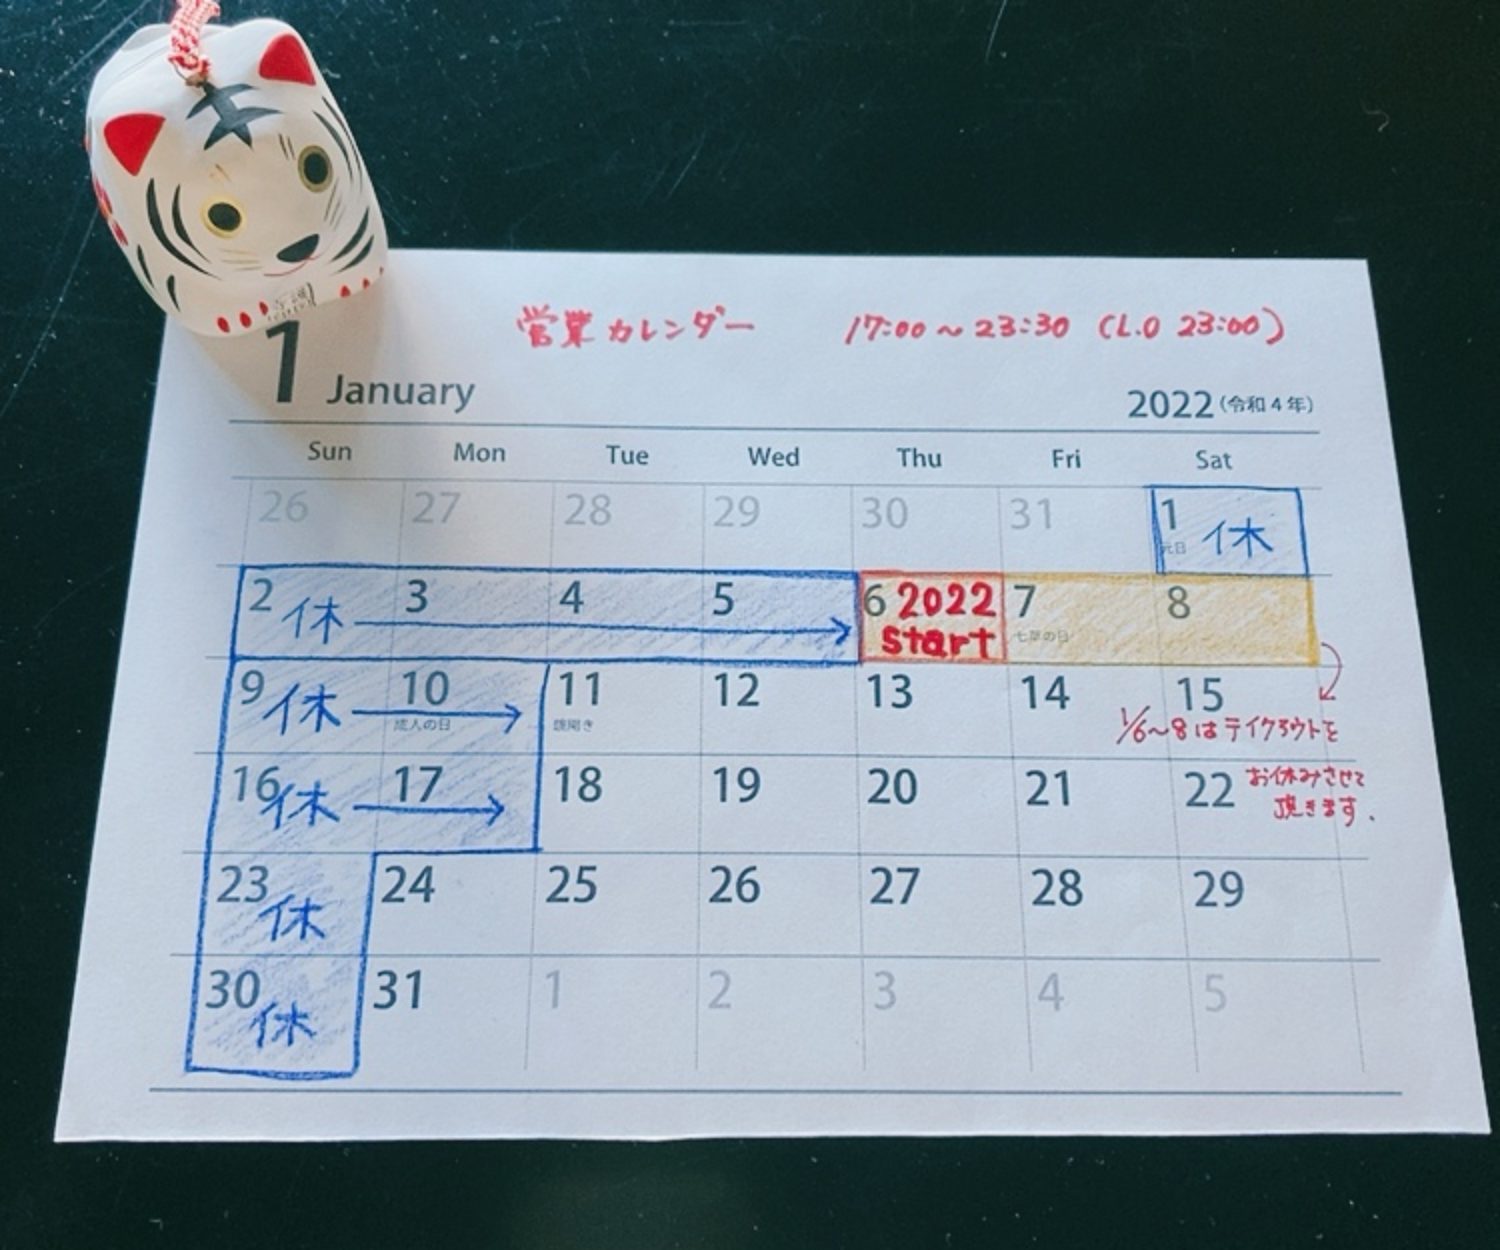 営業カレンダー 17:00～23:30 (L.O 23:00)
1 January
2022 (令和4年)
Sun Mon Tue Wed Thu Fri Sat
26 27 28 29 30 31 1 休
元日
2 休 3 4 5 6 2022 start 7 8
七草の日
9 休 10 11 12 13 14 15
成人の日 鏡開き
1/6～8はテイクアウトを
16 休 17 18 19 20 21 22
お休みさせて
頂きます.
23 休 24 25 26 27 28 29
30 休 31 1 2 3 4 5